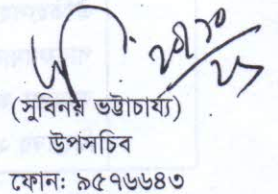 (সুবিনয় ভট্টাচার্য্য)
উপসচিব
ফোন: ৯৫৭৬৬৪৩